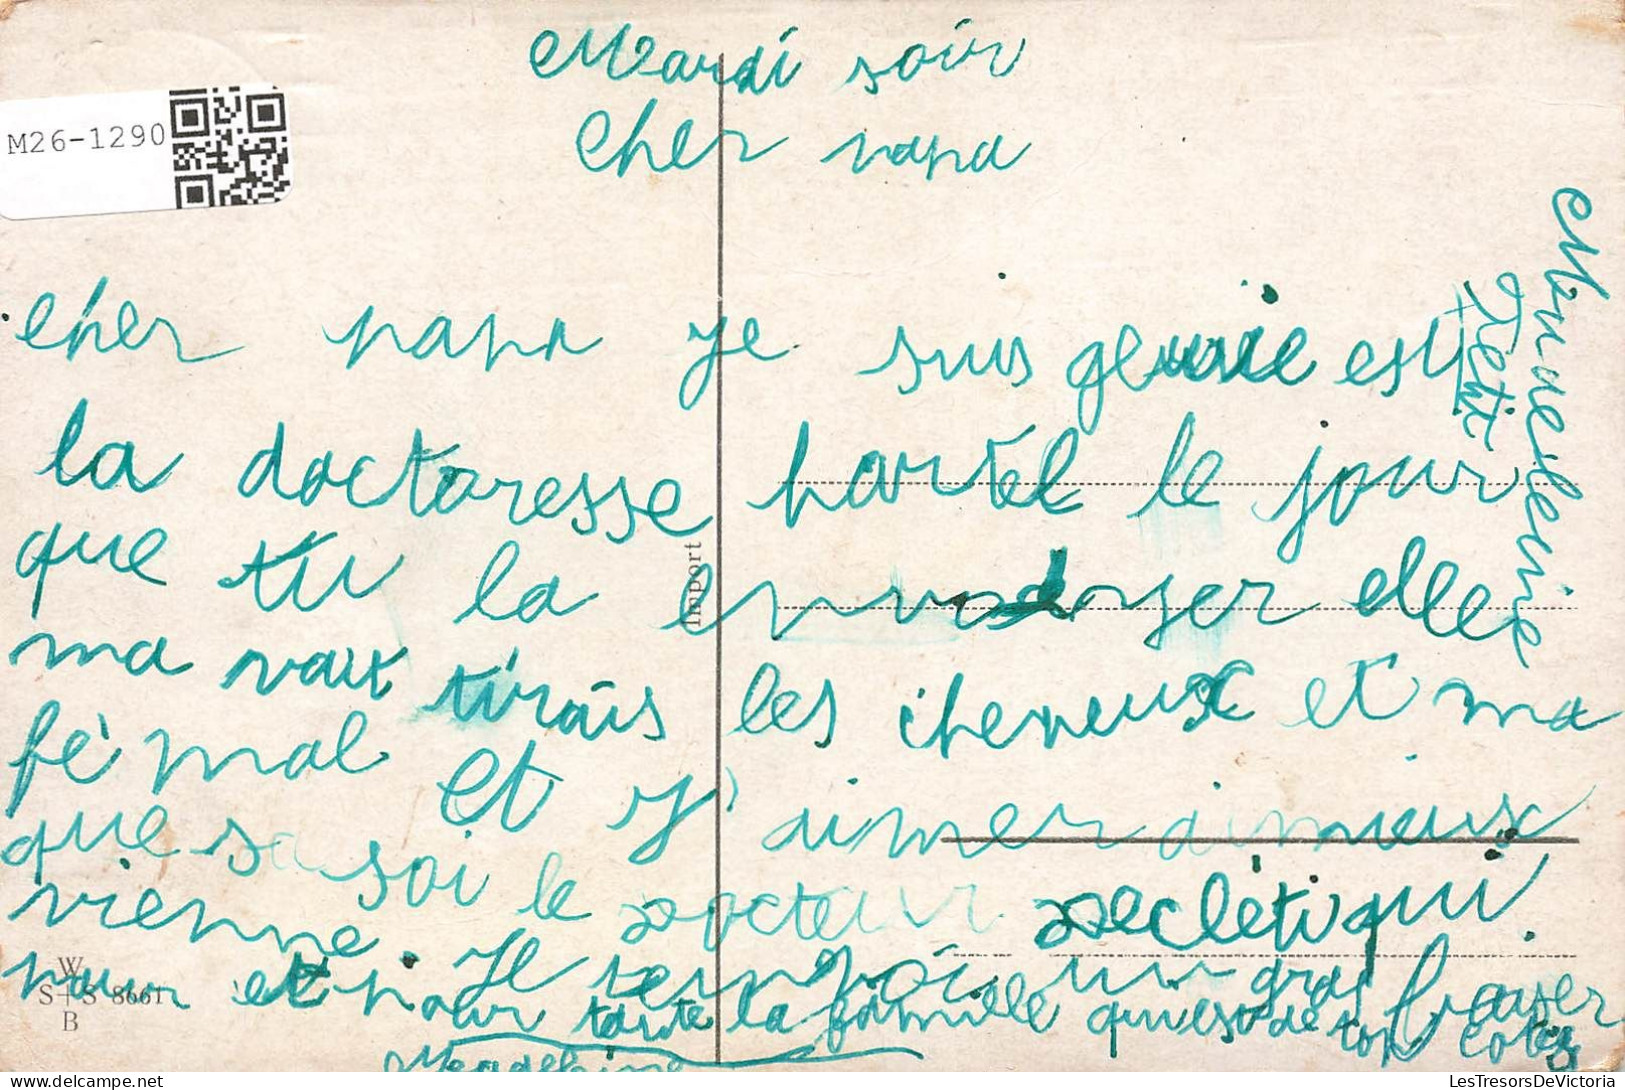 Mardi soir
Cher papa
M26-1290
cher papa je suis genvie est
la doctoresse hartel le jour
que tu la envoyer elle
ma vait tirais les cheveux et ma
fé mal et j'aimer aimieux
que sa soi le docteur qui
vienne. Je un gros
pour et pour toute la famille qui est de ton cotes
Madeleine
Petit
Import
W
S+S 8661
B
LesTresorsDeVictoria